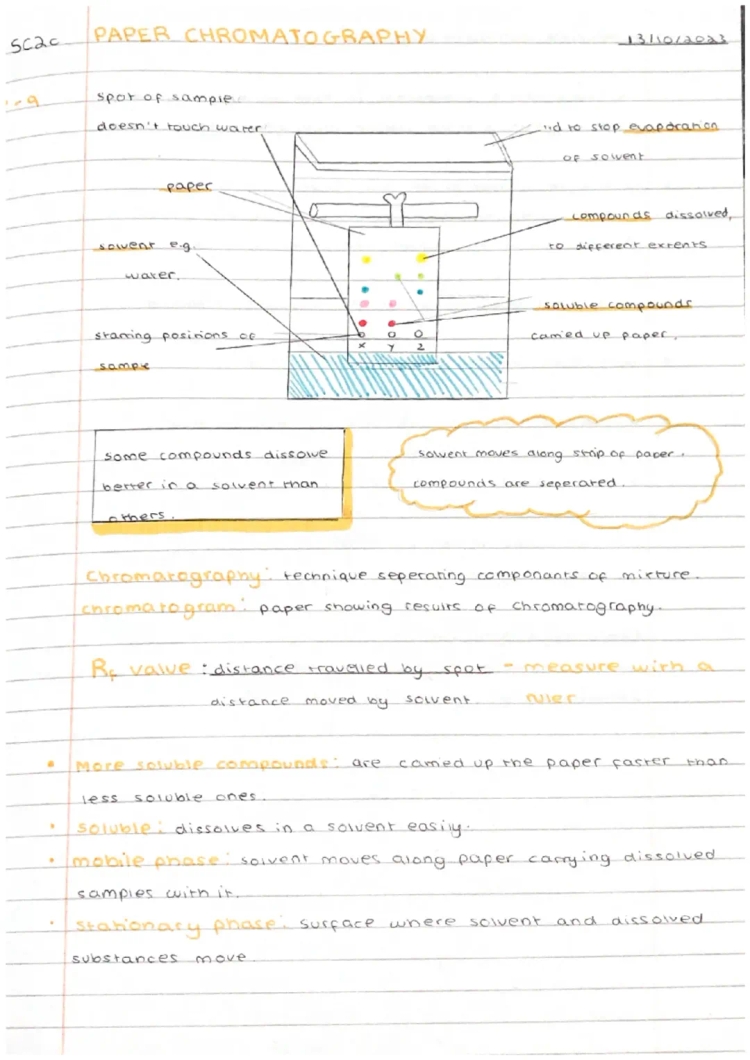 SC2c
PAPER CHROMATOGRAPHY
13/10/2023
spot of sample
doesn't touch water
paper
solvent e.g.
water.
starting positions of
sample
to stop evaporation
of solvent
compounds dissolved,
to different extents
soluble compounds
carried up paper.
x y z
some compounds dissolve
better in a solvent than
others.
solvent moves along strip of paper.
compounds are seperated.
Chromatography: technique seperating componants of mixture.
chromatogram: paper showing results of chromatography.
Rf value: distance travelled by spot - measure with a
distance moved by solvent. ruler
• More soluble compounds: are carried up the paper faster than
less soluble ones.
• soluble: dissolves in a solvent easily.
• mobile phase: solvent moves along paper carrying dissolved
samples with it.
• stationary phase: surface where solvent and dissolved
substances move.